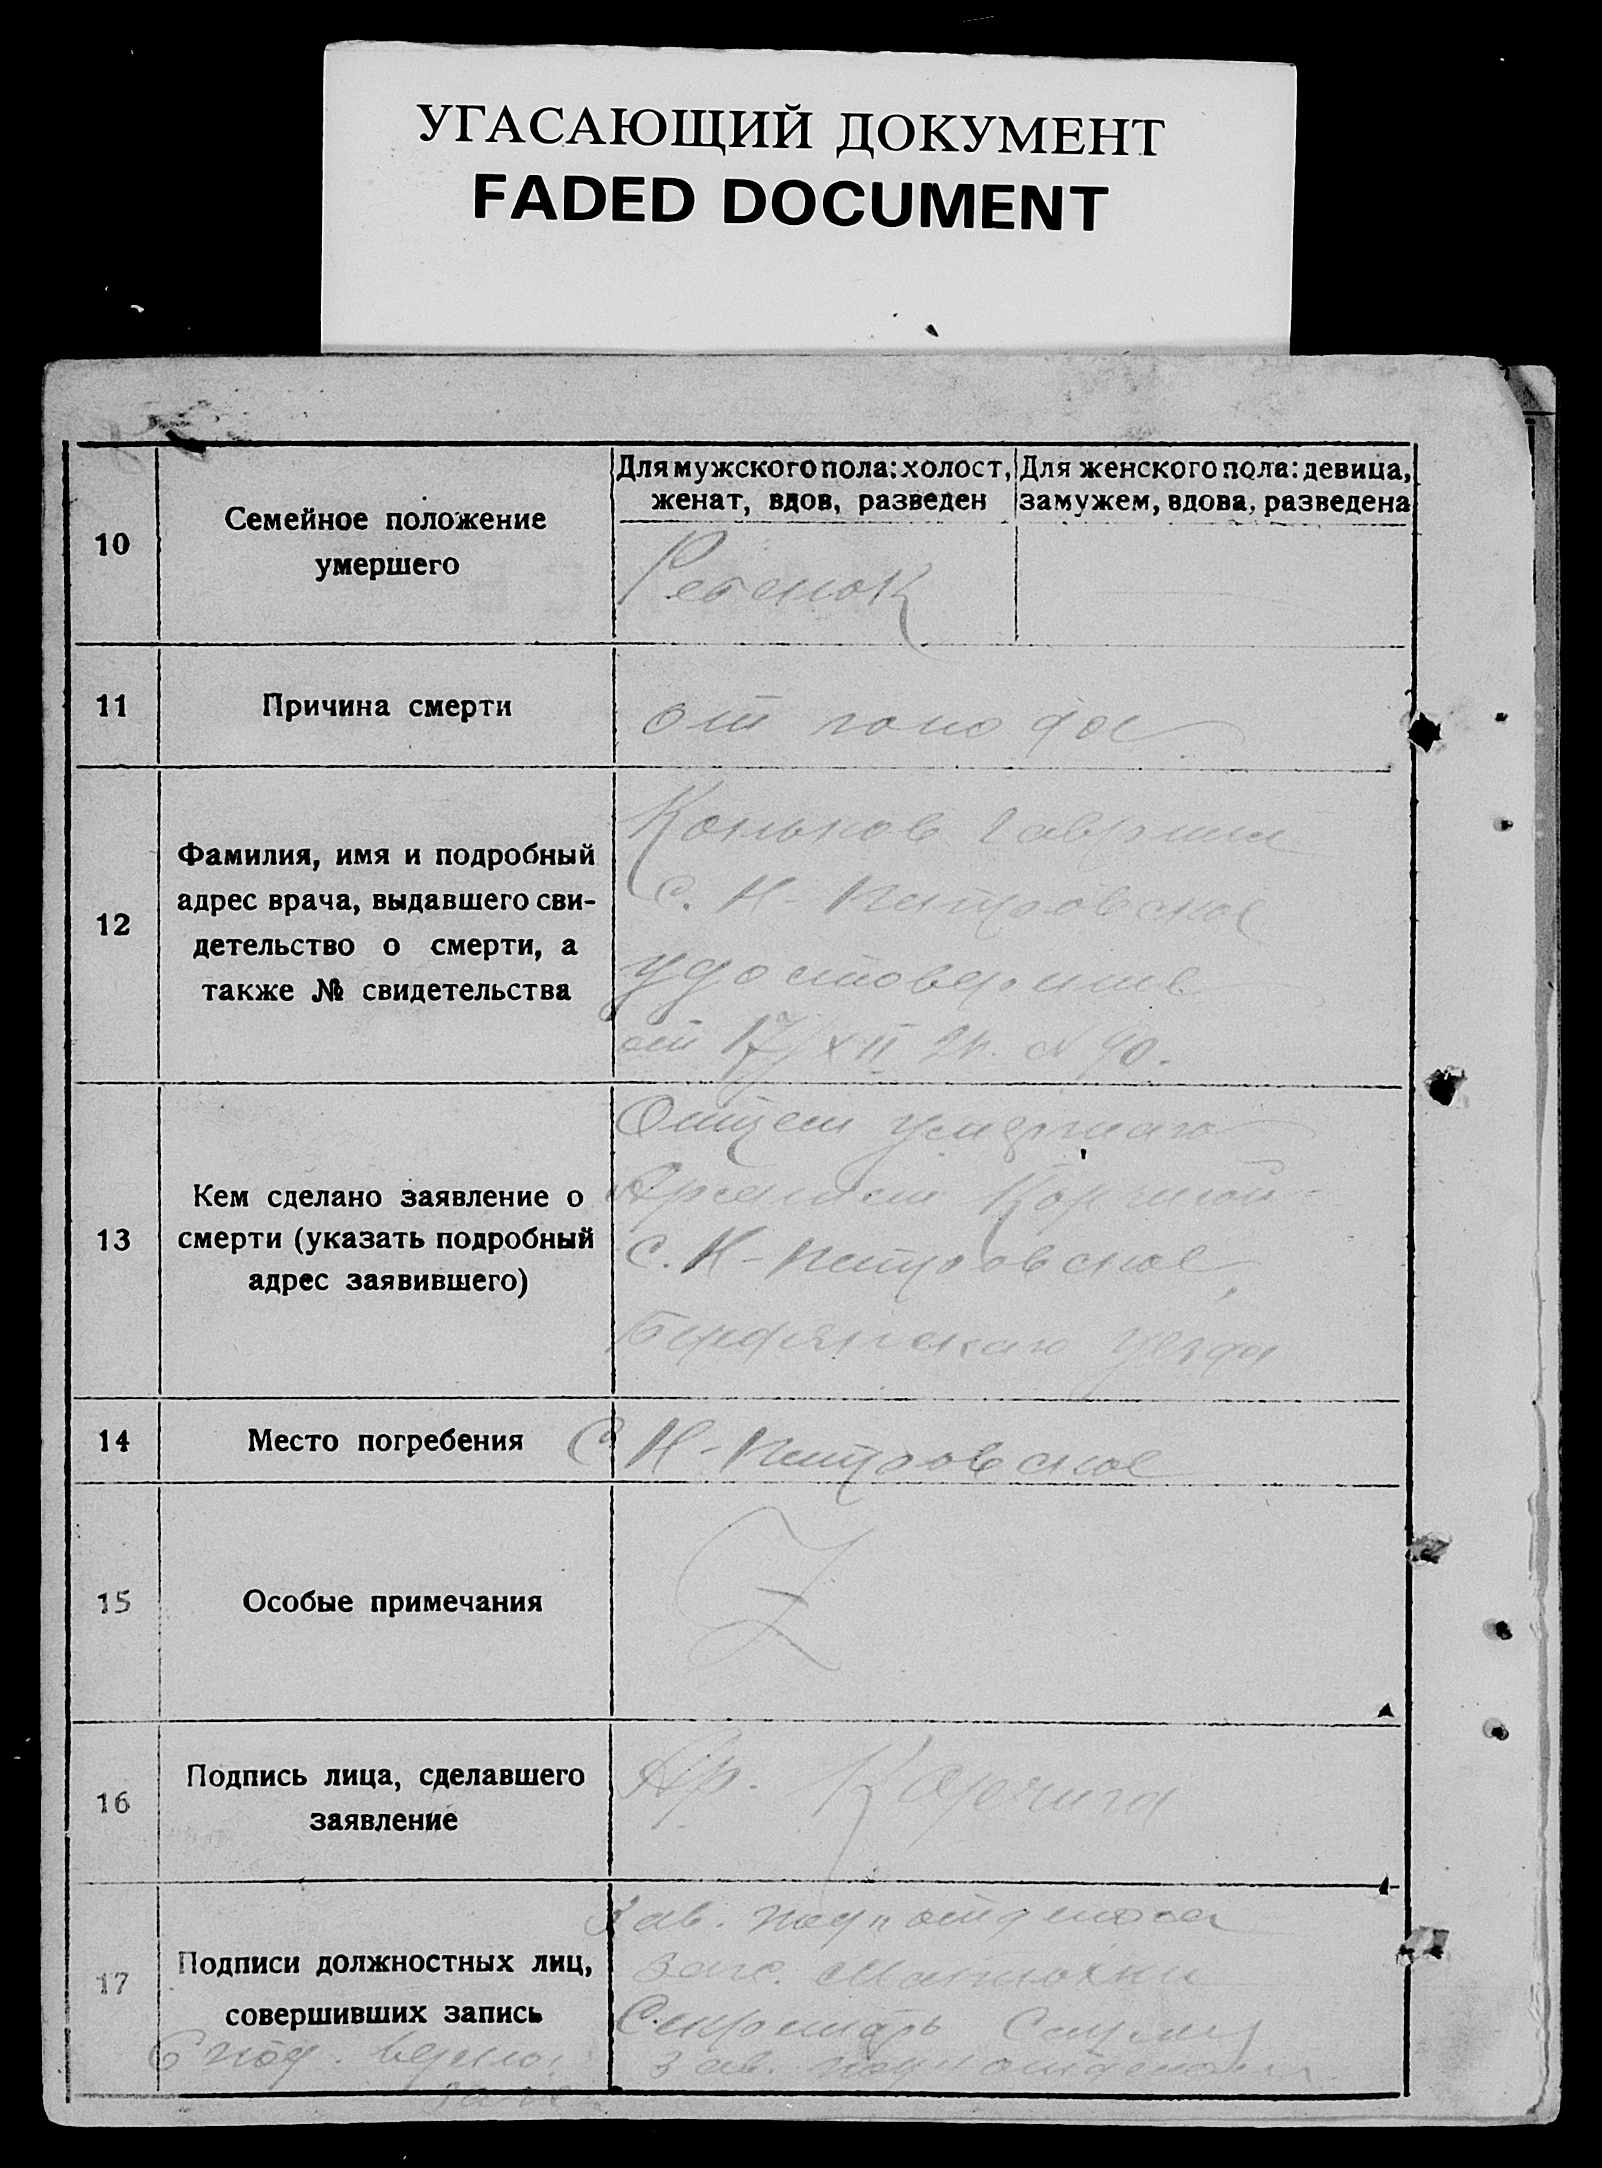 УГАСАЮЩИЙ ДОКУМЕНТ
FADED DOCUMENT
10
Семейное положение
умершего
Для мужского пола: холост,
женат, вдов, разведен
Для женского пола: девица,
замужем, вдова, разведена
Ребенок
11
Причина смерти
от
12
Фамилия, имя и подробный
адрес врача, выдавшего сви-
детельство о смерти, а
также № свидетельства
Коньков Гавриил
С. Н-Петровское
удостоверение
от 17/XII
13
Кем сделано заявление о
смерти (указать подробный
адрес заявившего)
Отцем умершаго
С. Н-Петровское,
Бердянскаго уезда
14
Место погребения
С Н-Петровское
15
Особые примечания
Z
16
Подпись лица, сделавшего
заявление
Ар.
17
Подписи должностных лиц,
совершивших запись
Зав. подъотделом
загс.
Секретарь
С под. верно:
Зав. подъотделом
загс